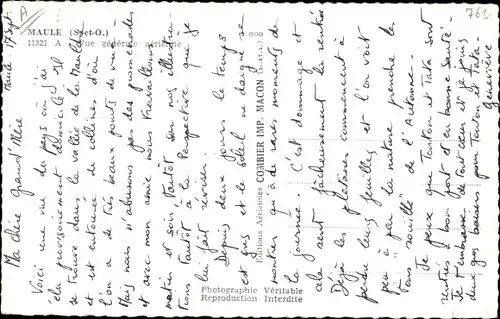 A
762
MAULE (S.-et-O.)
11321 A Vue générale aérienne
Maule 17 sept.
Ma chère Grand'Mère
Voici une vue du pays où j'ai
élu provisoirement domicile. Il
se trouve dans la vallée de la Mauldre
et est entouré de collines d'où
l'on a de très beaux points de vue.
Mais nous n'abusons pas des promenades
et avec mon amie nous travaillons
matin et soir. Tantôt nous
tantôt à la Perspective que je
lui fait réviser.
Depuis deux jours le temps
est gris et le soleil ne daigne se
montrer qu'à de rares moments de
la journée. C'est dommage et
cela sent fâcheusement la rentrée
Déjà les platanes commencent à
perdre leurs feuilles et l'on voit
peu à peu la nature prendre les
tons "rouille" de l'Automne.
Je pense que Tonton et Tata sont
rentrés à bon port et en bonne santé.
Je t'embrasse de tout cœur et je joins
deux gros baisers pour Tonton et Tata.
Geneviève
Editions Aériennes COMBIER IMP. MACON
Photographie Véritable
Reproduction Interdite